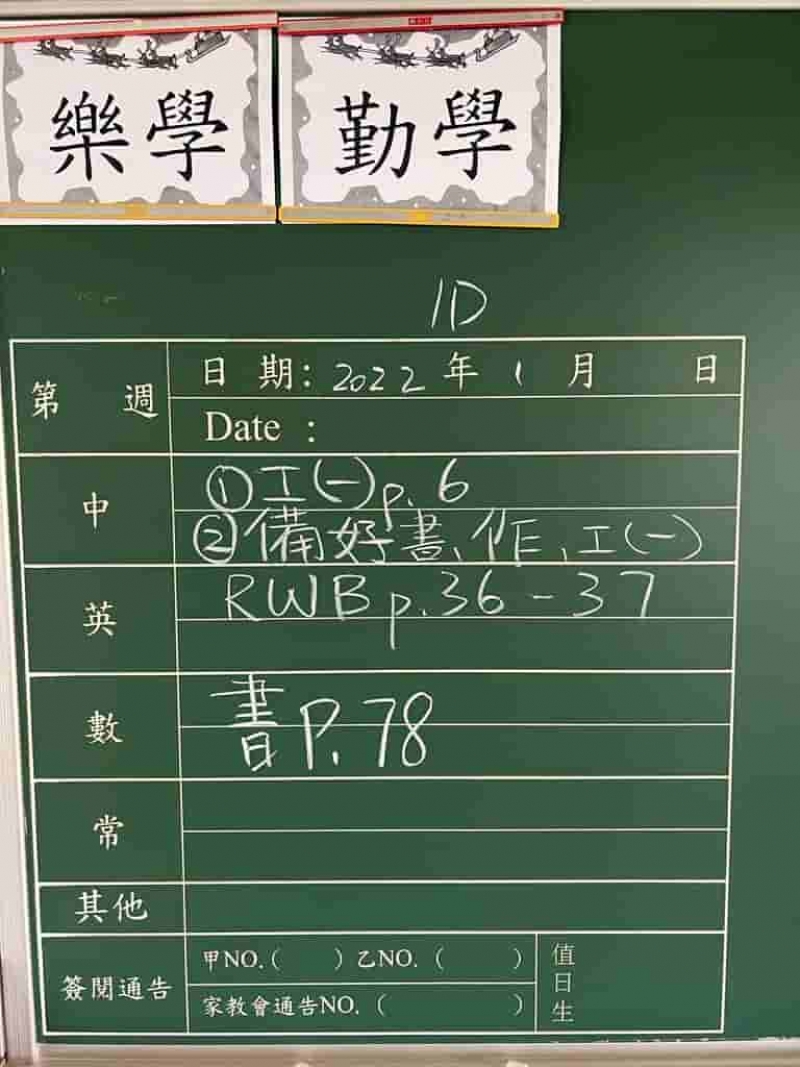 樂學 勤學
1D
第 週
日 期: 2022 年 1 月 日
Date :
中
①工(一)p.6
②備好書、作、工(一)
英
RWB p.36-37
數
書P.78
常
其他
簽閱通告
甲NO.( ) 乙NO. ( )
家教會通告NO. ( )
值日生